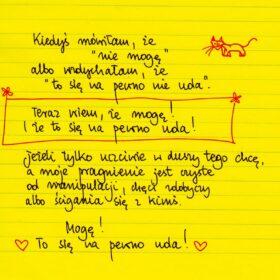 Kiedyś mówiłam, że
"nie mogę"
albo wzdychałam, że
"to się na pewno nie uda".
Teraz wiem, że mogę!
I że to się na pewno uda!
Jeżeli tylko uczciwie w duszy tego chcę,
a moje pragnienie jest czyste
od manipulacji, chęci zdobyczy
albo ścigania się z kimś.
Mogę!
To się na pewno uda!